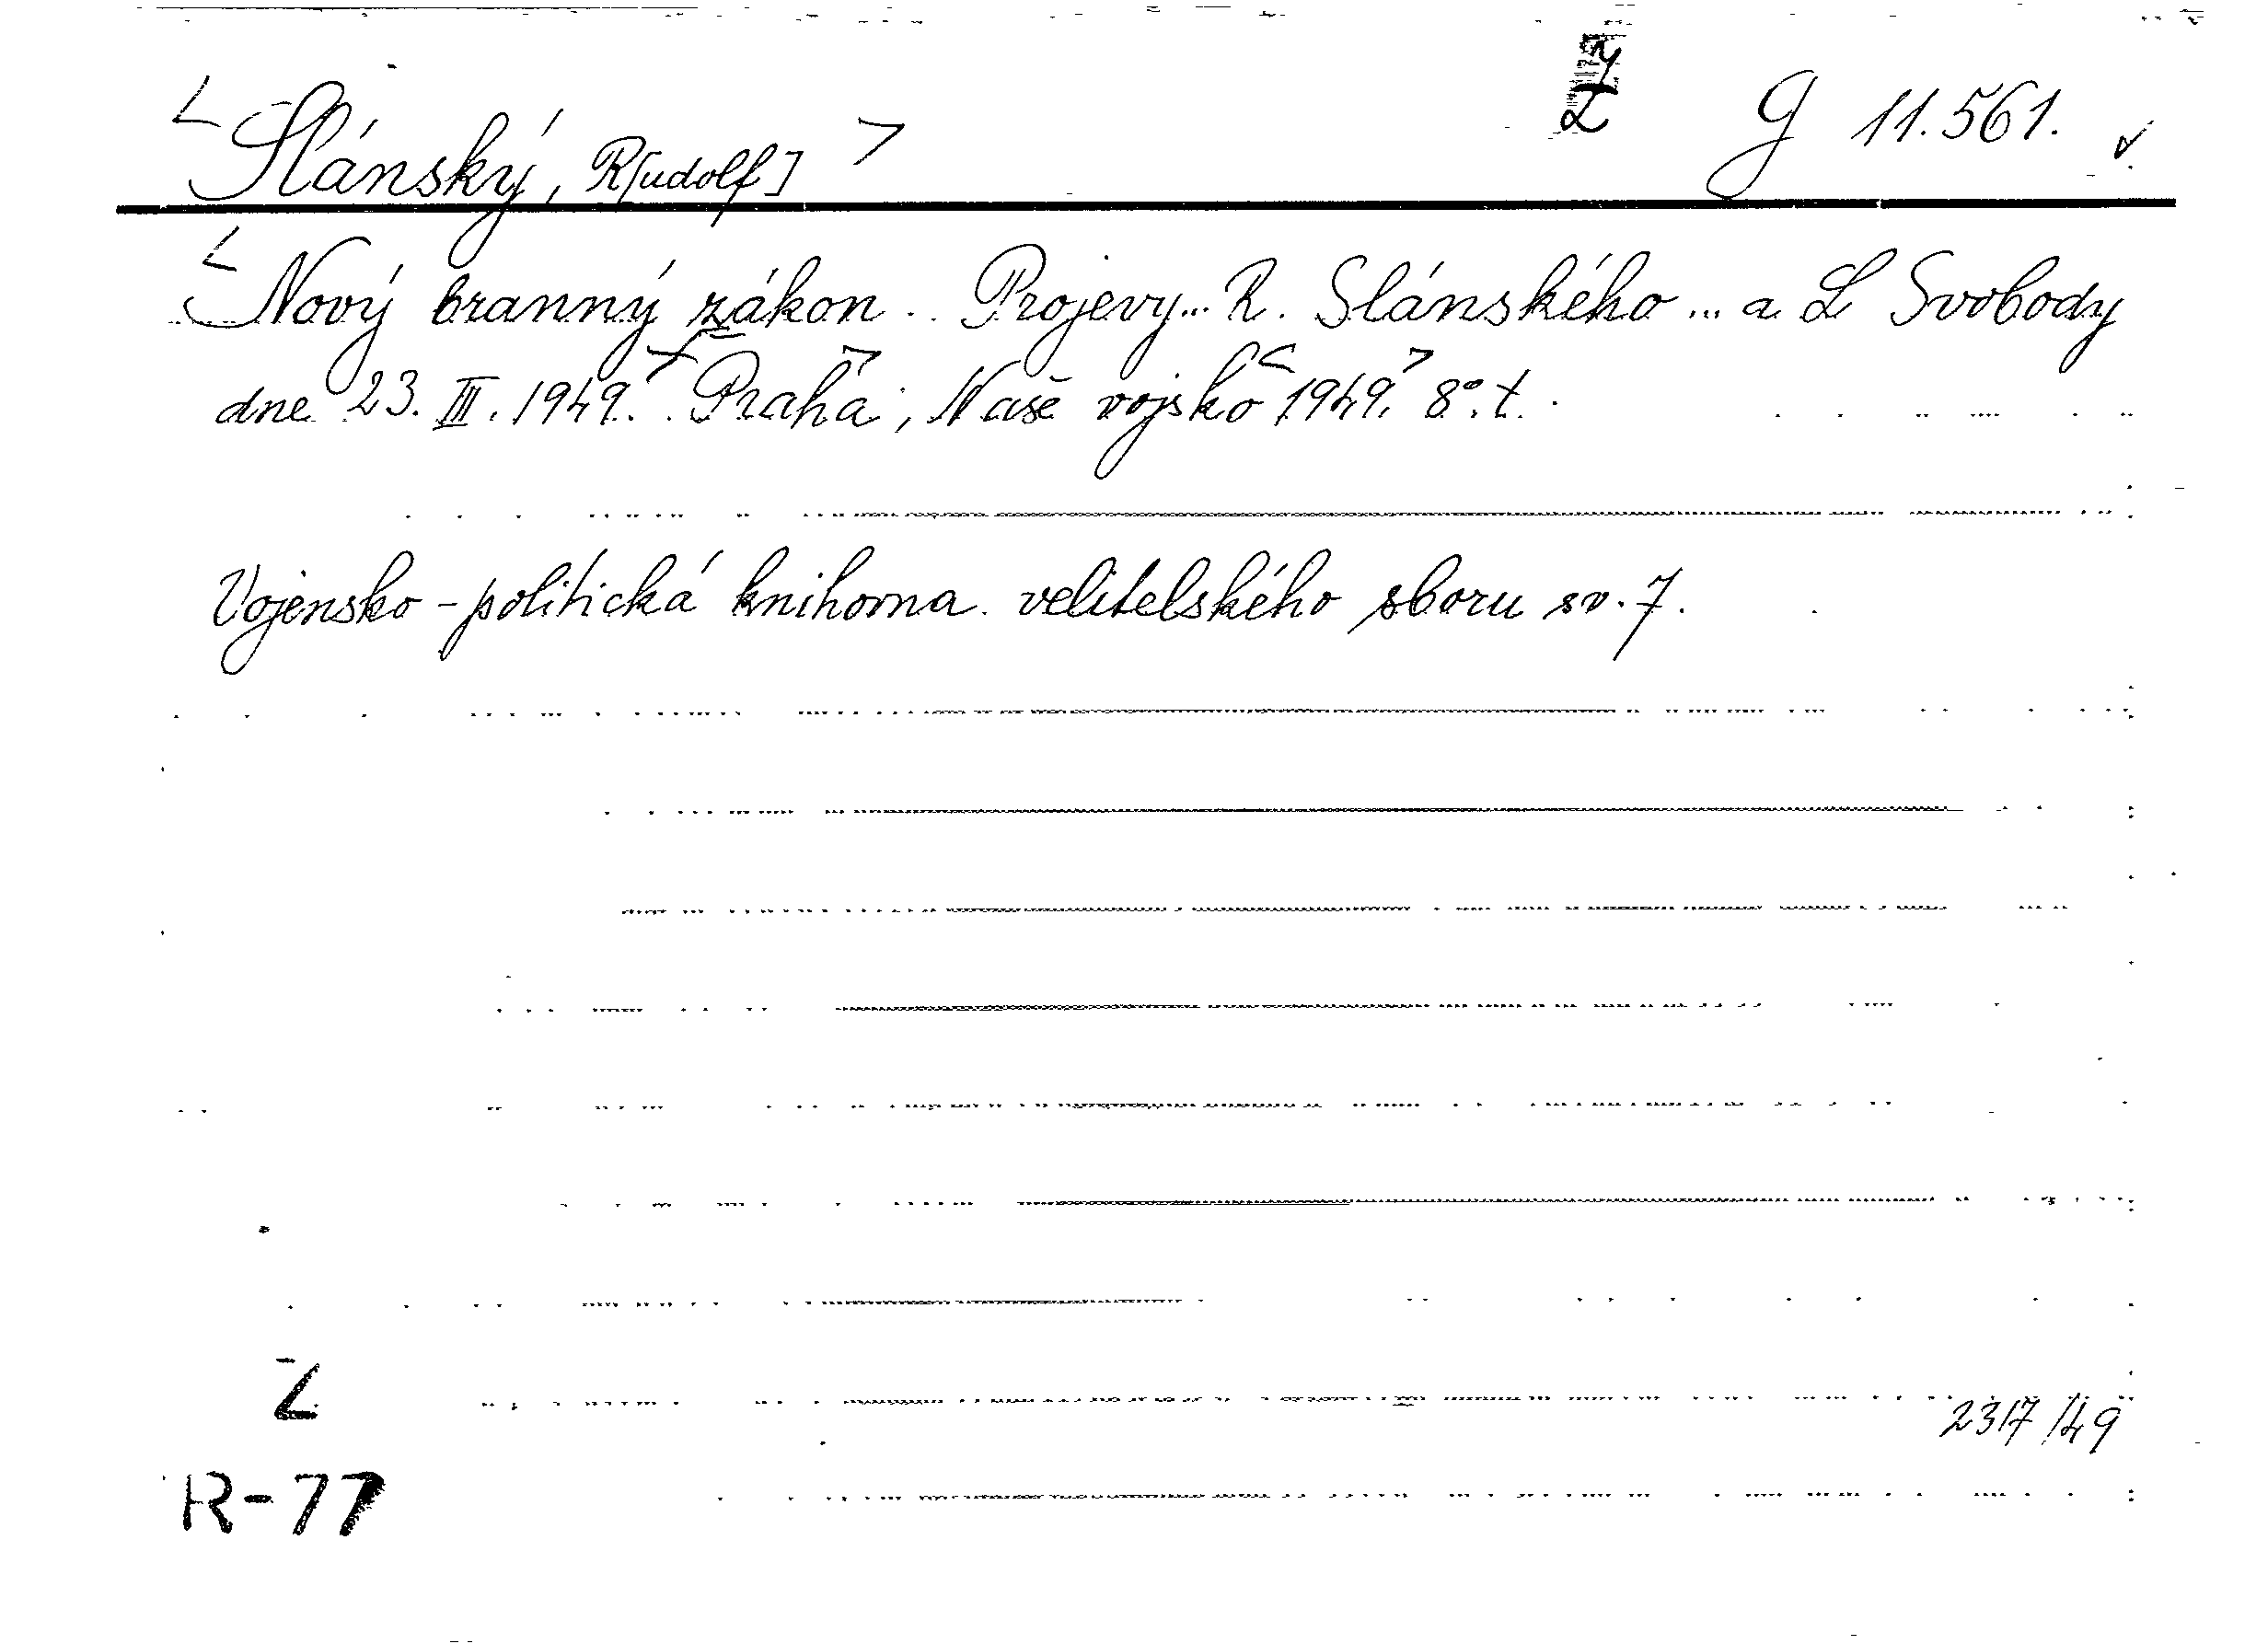 < Slánský, R[udolf] > Z G 11.561. ✓
< Nový branný zákon. Projevy... R. Slánského ... a L Svobody
dne 23. III. 1949. > Praha >, Naše vojsko < 1949. > 8°. t.
Vojensko-politická knihovna velitelského sboru sv. 7.
Z
2317/49
R-77